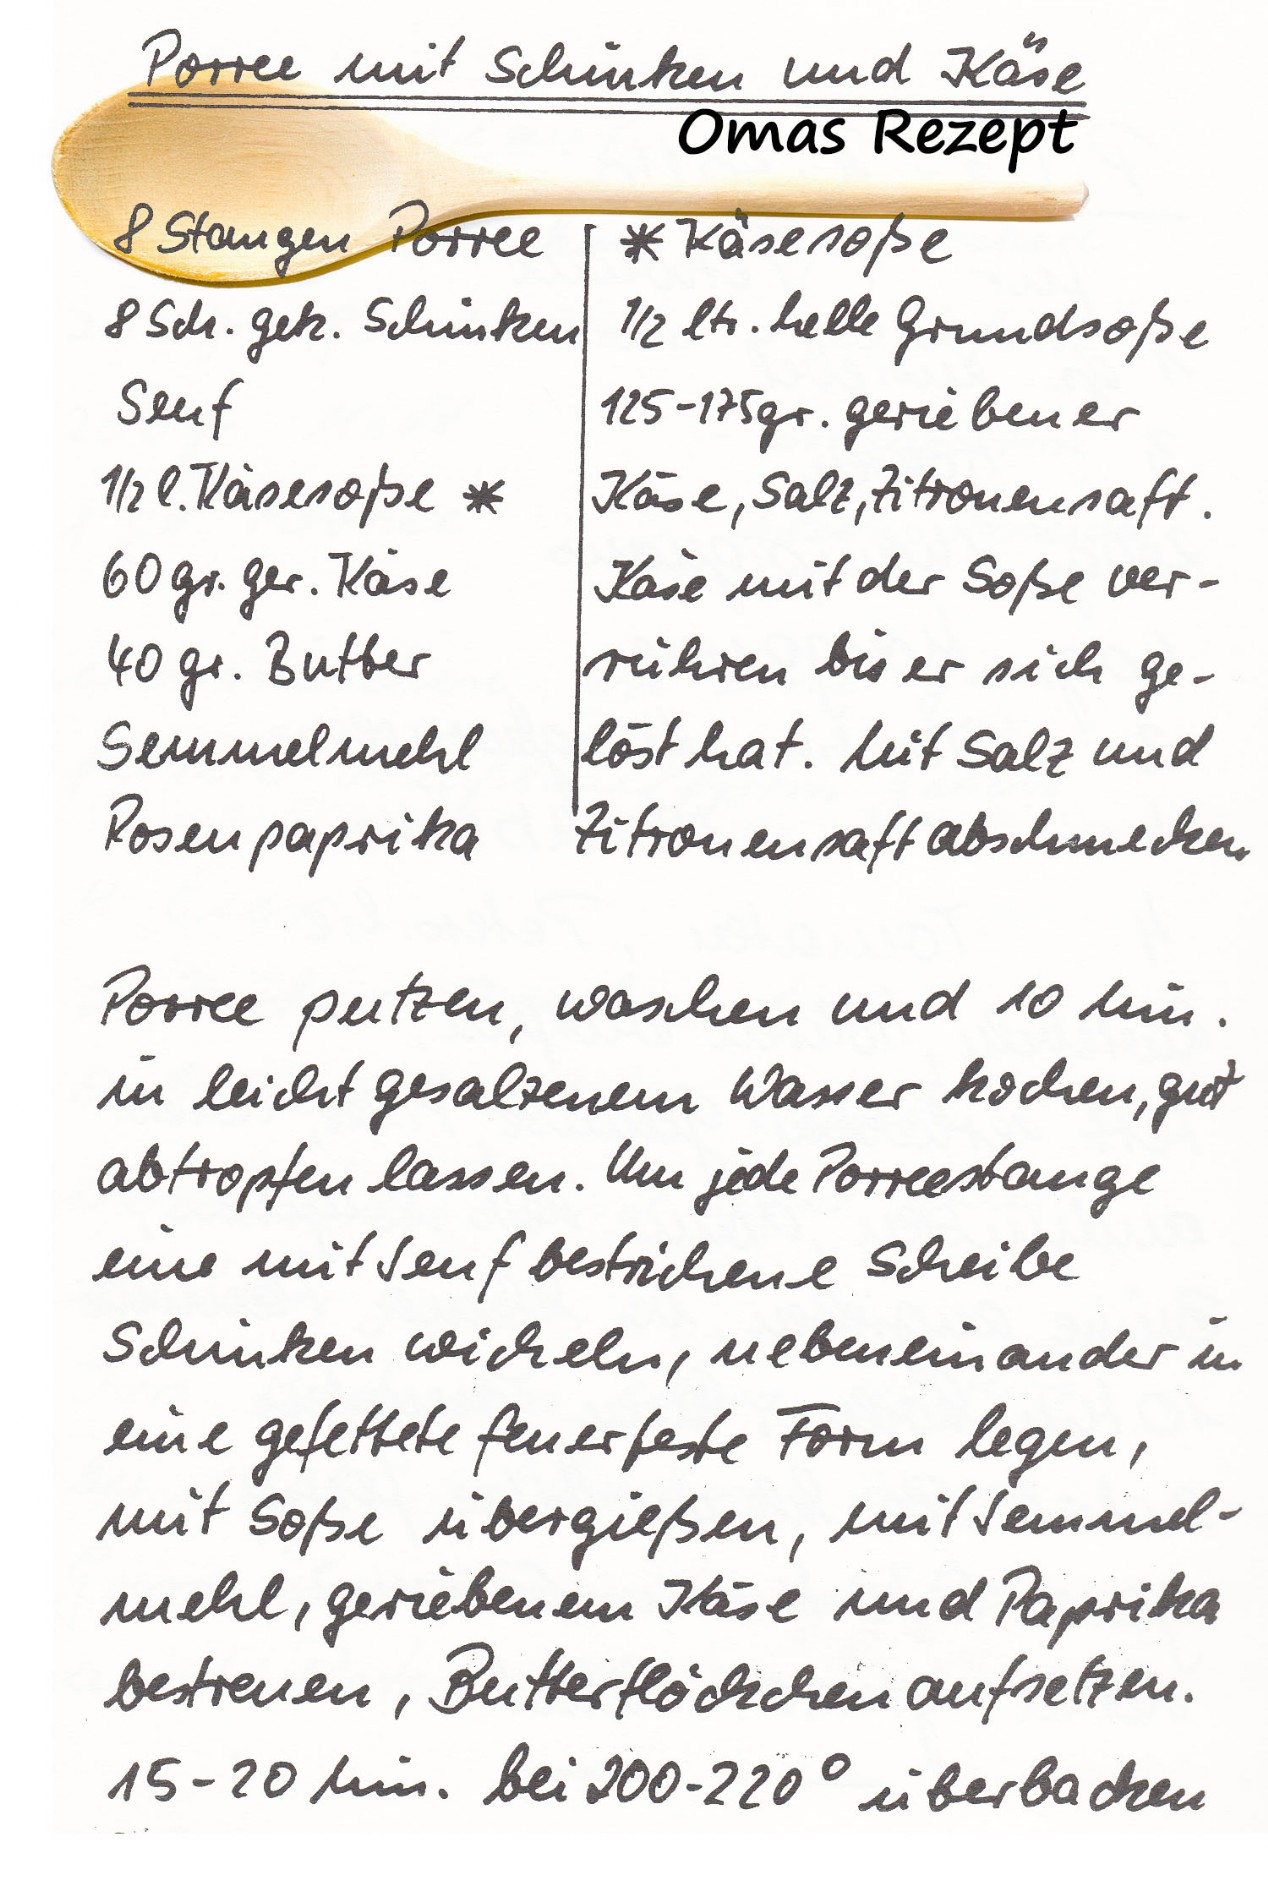 Porree mit Schinken und Käse
Omas Rezept
8 Stangen Porree
8 Sch. gek. Schinken
Senf
1/2 l. Käsesoße *
60 gr. ger. Käse
40 gr. Butter
Semmelmehl
Rosenpaprika
* Käsesoße
1/2 ltr. helle Grundsoße
125-175gr. geriebener
Käse, Salz, Zitronensaft.
Käse mit der Soße ver-
rühren bis er sich ge-
löst hat. Mit Salz und
Zitronensaft abschmecken.
Porree putzen, waschen und 10 Min.
in leicht gesalzenem Wasser kochen, gut
abtropfen lassen. Um jede Porreestange
eine mit Senf bestrichene Scheibe
Schinken wickeln, nebeneinander in
eine gefettete feuerfeste Form legen,
mit Soße übergießen, mit Semmel-
mehl, geriebenem Käse und Paprika
bestreuen, Butterflöckchen aufsetzen.
15-20 Min. bei 200-220° überbacken